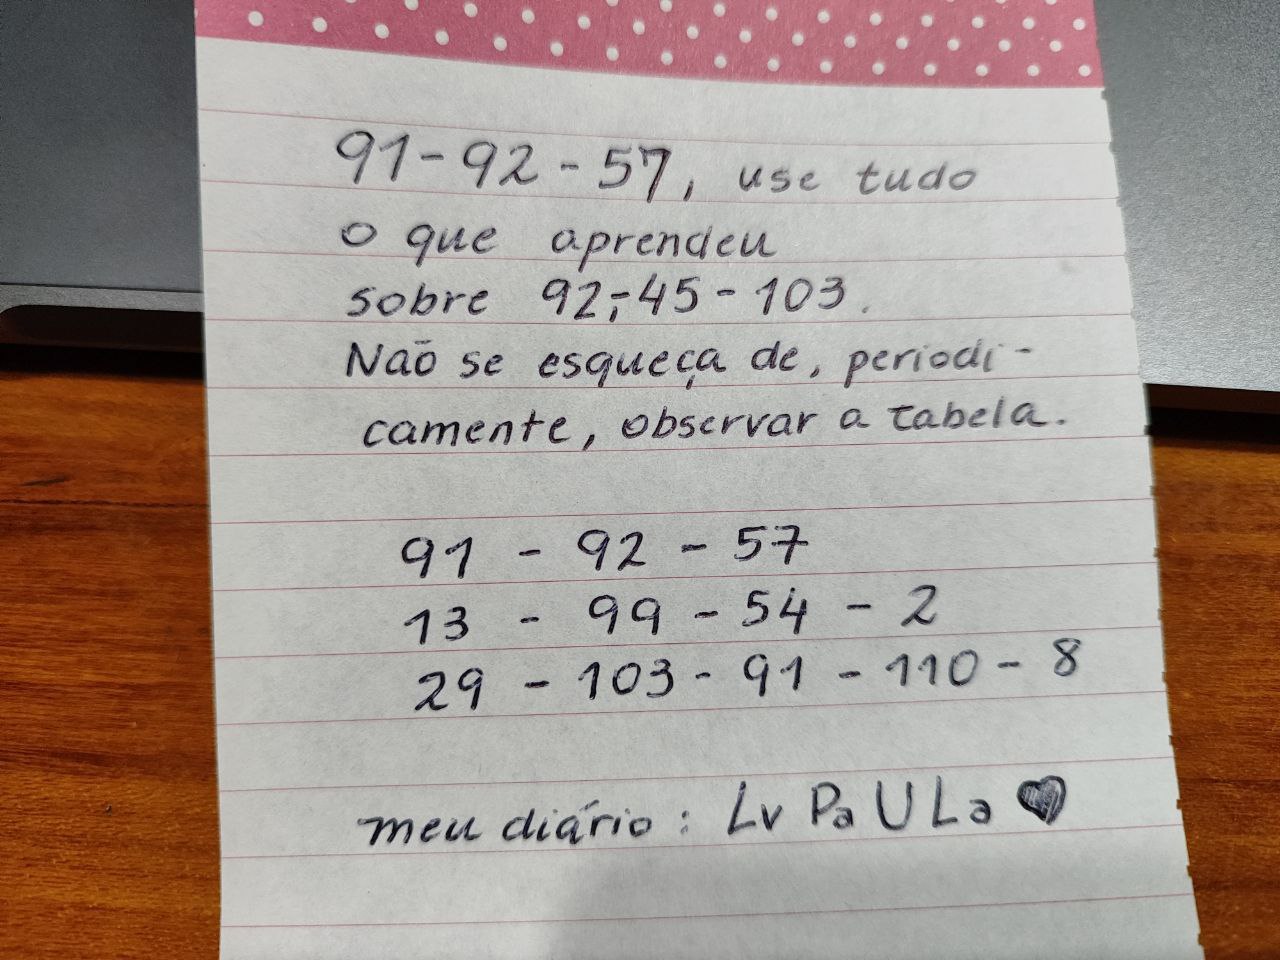 91-92-57, use tudo
o que aprendeu
sobre 92,-45-103.
Não se esqueça de, periodi-
camente, observar a tabela.
91 - 92 - 57
13 - 99 - 54 - 2
29 - 103 - 91 - 110 - 8
meu diário: Lv Pa U La ♥